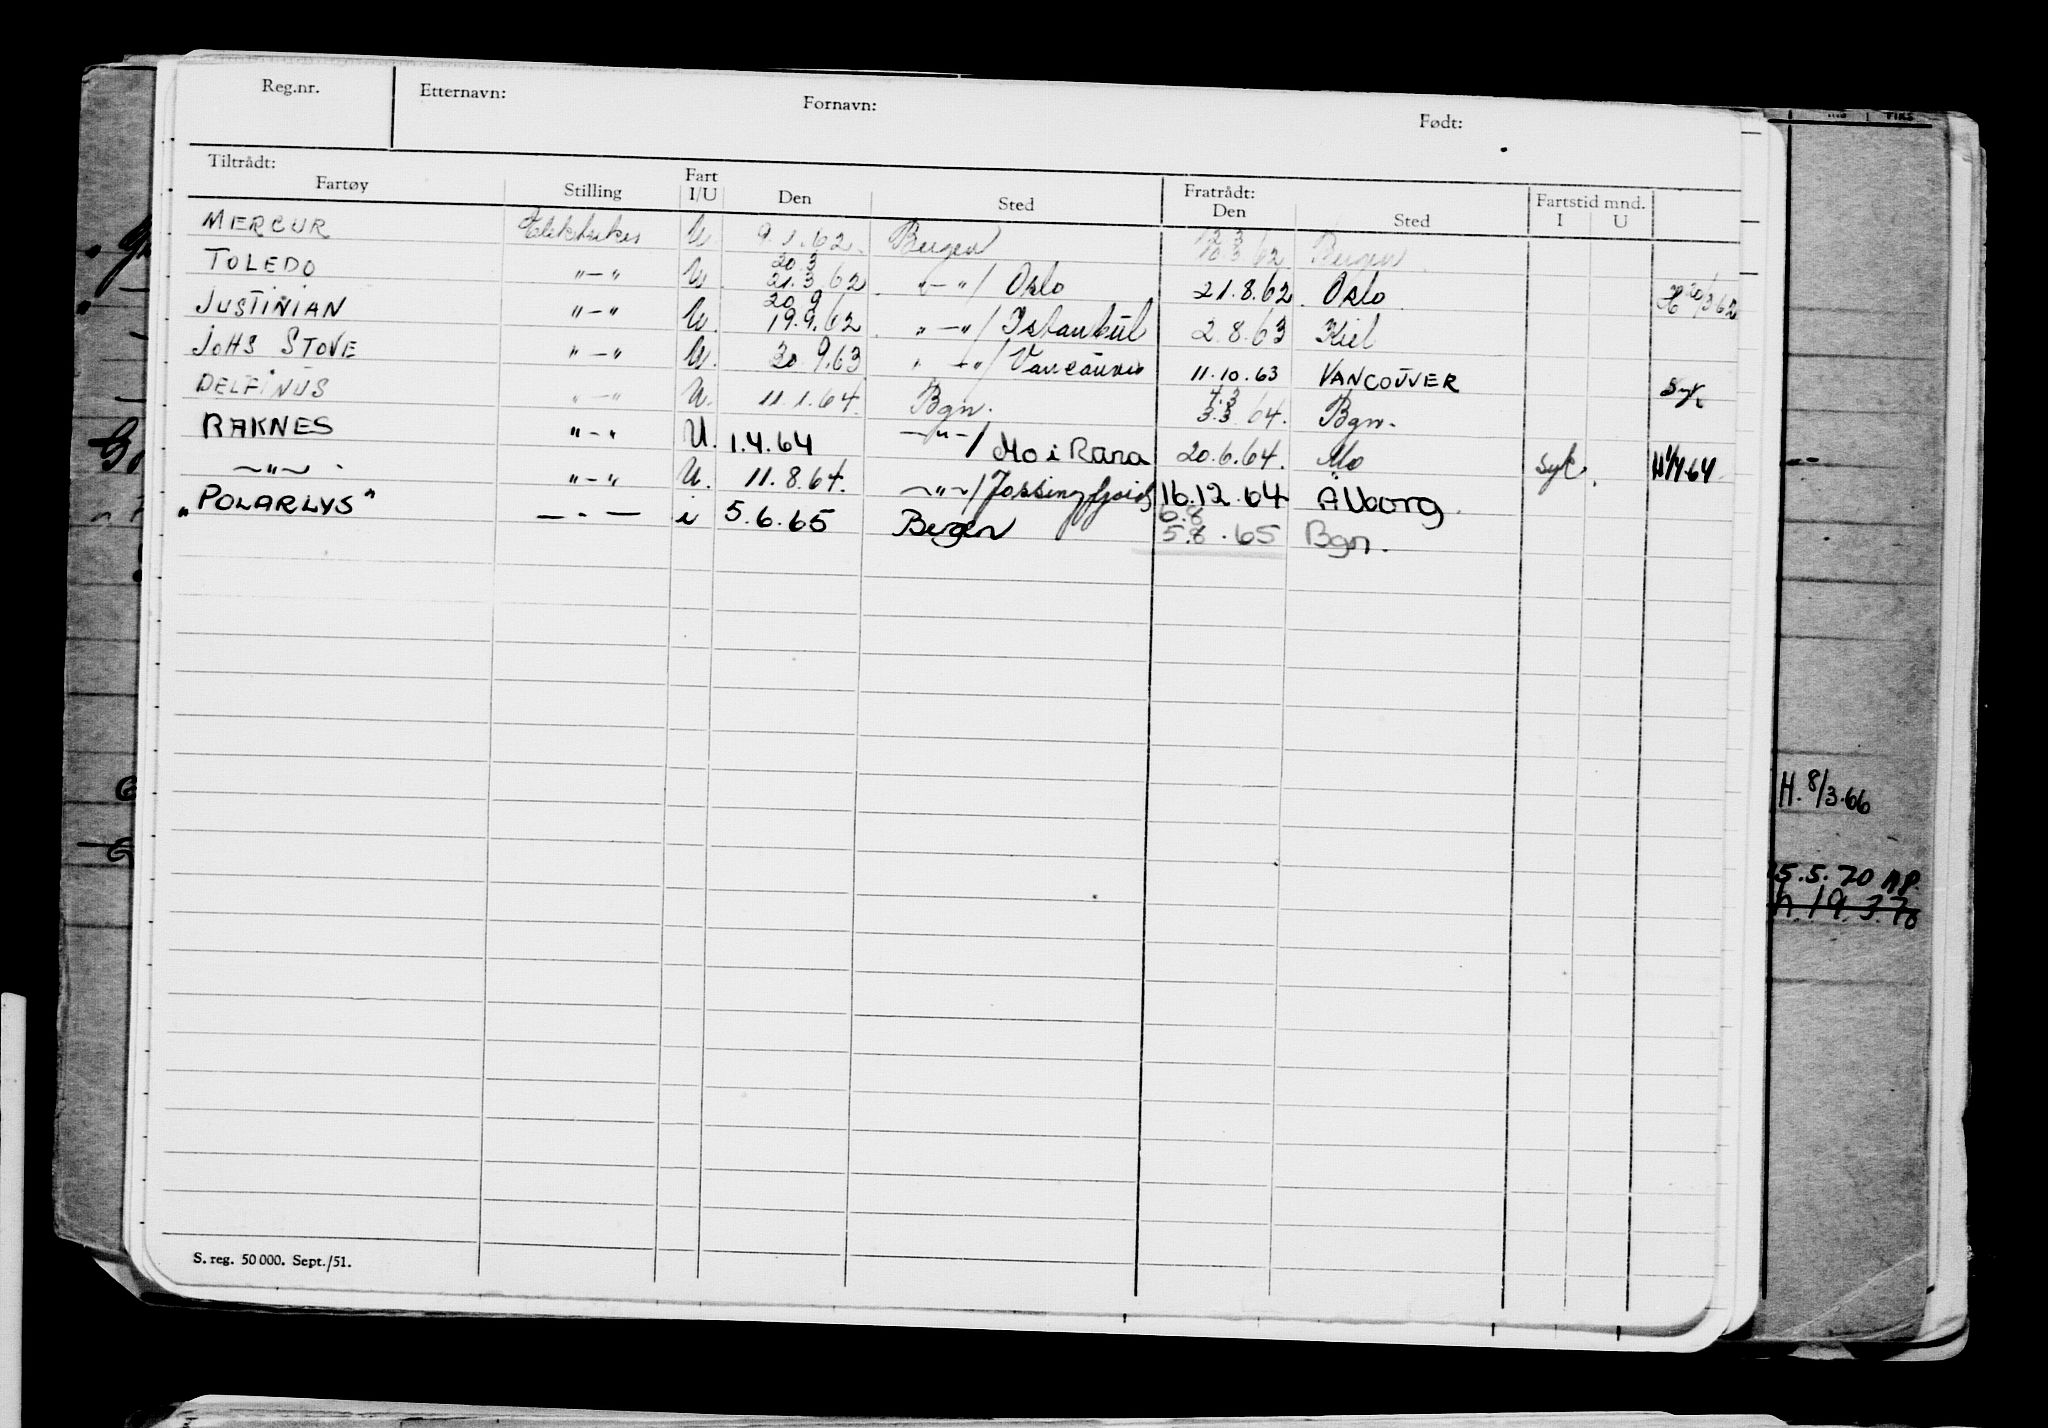 Reg.nr. Etternavn: Fornavn: Født:
Tiltrådt: Fratrådt: Fartstid mnd.
Fartøy Stilling Fart I/U Den Sted Den Sted I U
MERCUR U. 9.1.62 Bergen 12.3 10.3.62 Bergen
TOLEDO "—" U. 20.3 21.3.62 "—"/ Oslo 21.8.62 Oslo H 20/3 62
JUSTINIAN "—" U. 20.9 19.9.62 "—"/ Istanbul 2.8.63 Kiel
JOHS STOVE "—" U. 30.9.63 "—"/ Vancouver 11.10.63 VANCOUVER Syk
DELFINUS "—" U. 11.1.64. Bgn. 3.3.64. Bgn.
RAKNES "-" U. 1.4.64 —"—/ Mo i Rana 20.6.64. Mo syk. H 1/4 64
—"— "-" U. 11.8.64. —"—/ Jøssingfjord 16.12.64 Ålborg.
"POLARLYS" — - — i 5.6.65 Bergen 6.8 5.8.65 Bgn.
H. 8/3.66
15.5.70 AP.
h. 19.3.70
S. reg. 50 000. Sept./51.